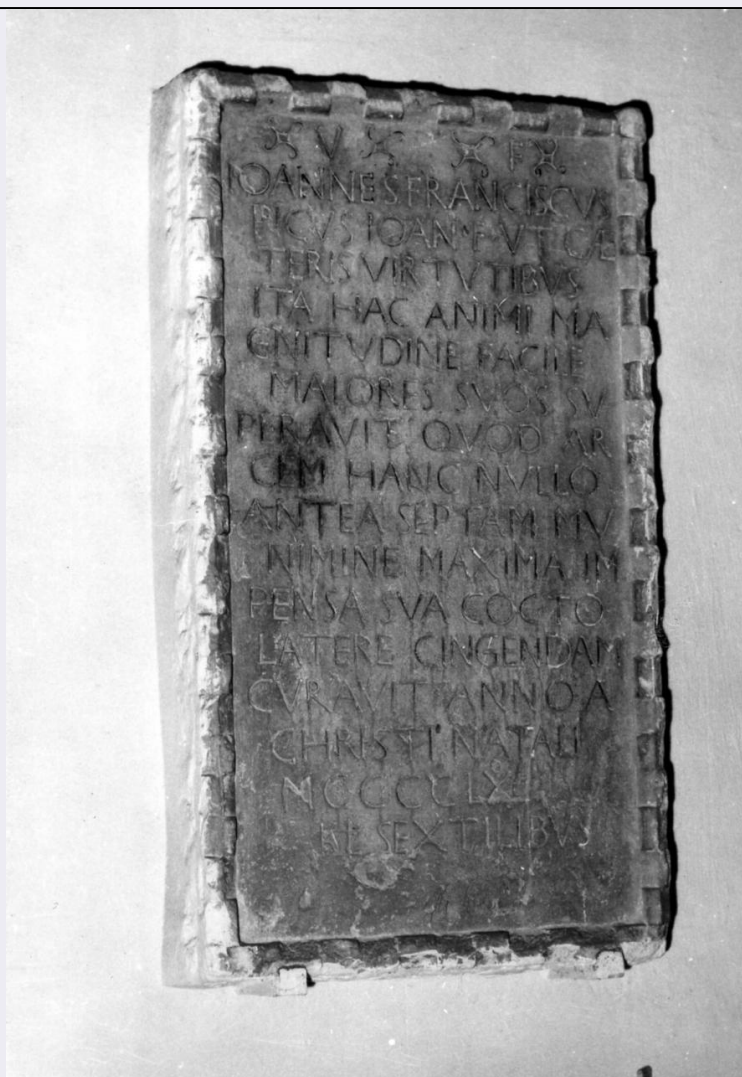 V F
IOANNES FRANCISCVS
PICVS IOAN F VT CAE
TERIS VIRTVTIBVS
ITA HAC ANIMI MA
GNITVDINE FACILE
MAIORES SVOS SV
PERAVIT QVOD AR
CEM HANC NVLLO
ANTEA SEPTAM MV
NIMINE MAXIMA IM
PENSA SVA COCTO
LATERE CINGENDAM
CVRAVIT ANNO A
CHRISTI NATALI
MCCCCLXI
KL SEXTILIBVS